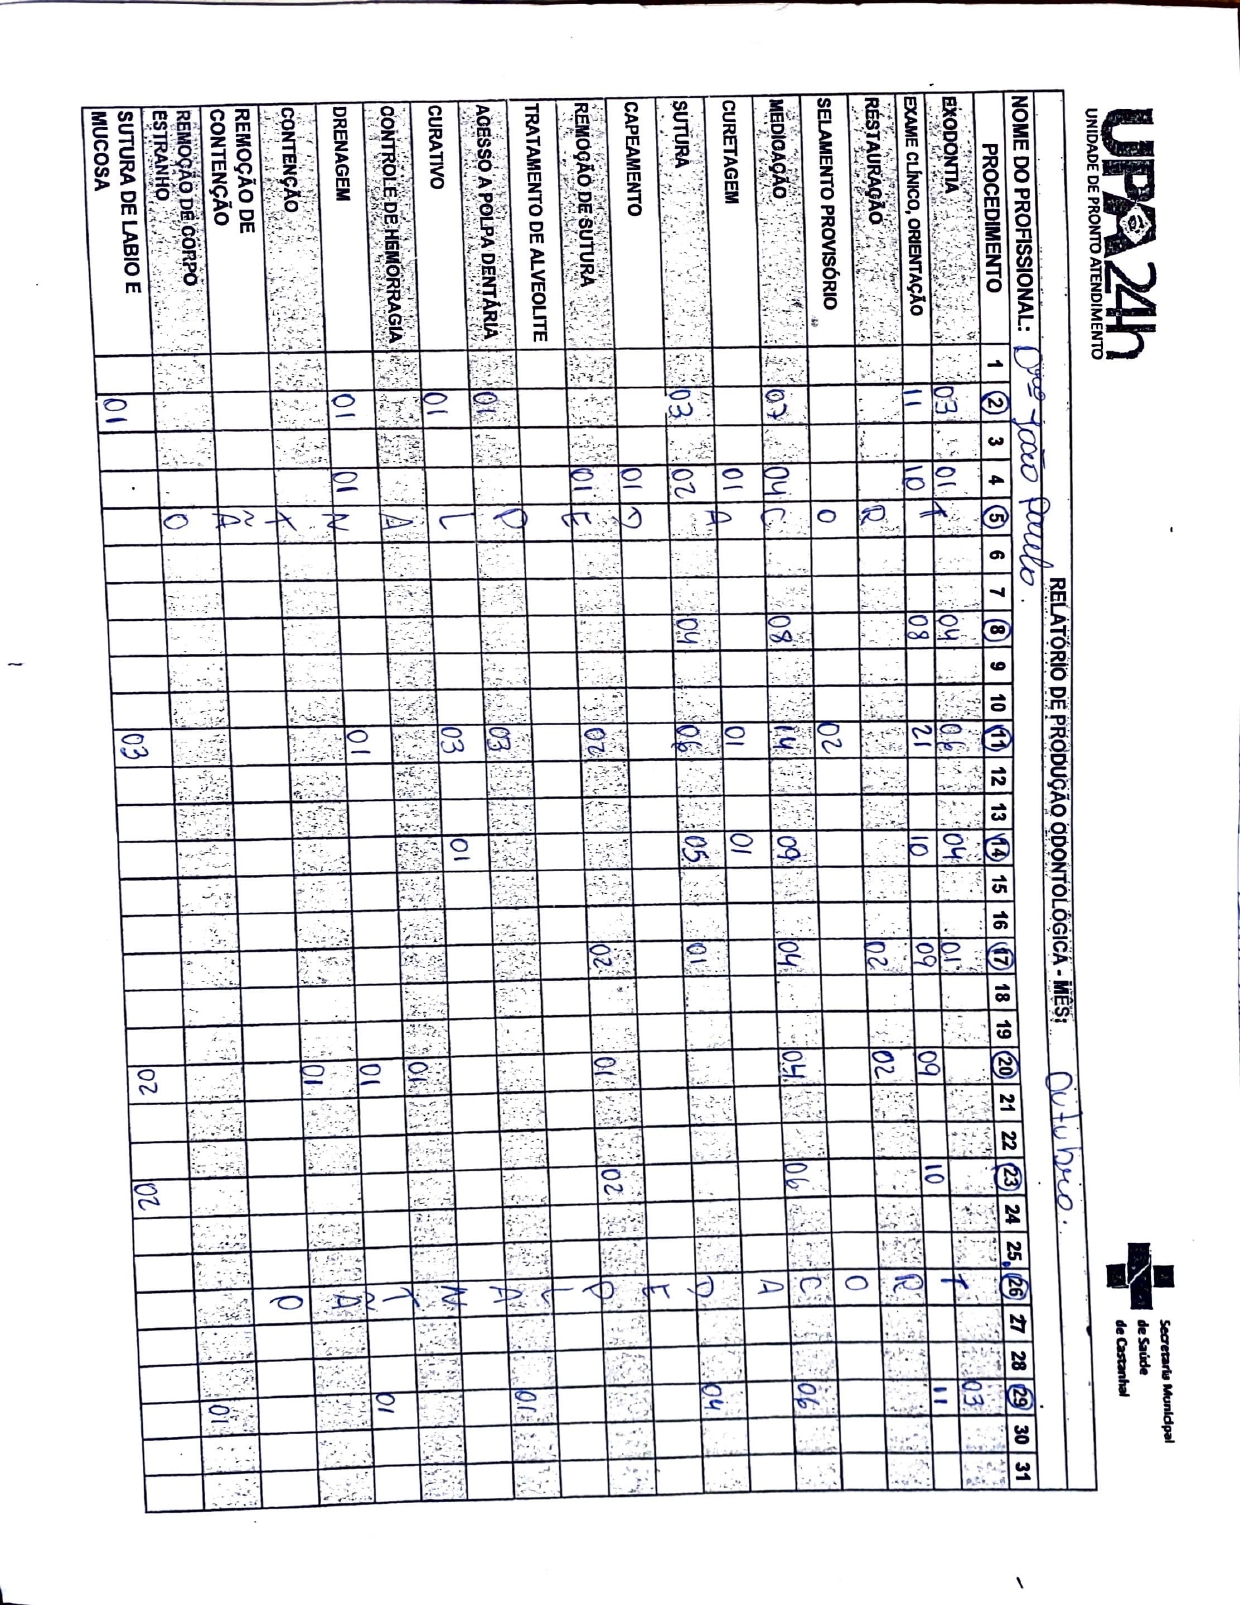 UPA 24h
UNIDADE DE PRONTO ATENDIMENTO
Secretaria Municipal
de Saúde
de Castanhal
RELATÓRIO DE PRODUÇÃO ODONTOLÓGICA - MÊS: Outubro.
NOME DO PROFISSIONAL: Drº João Paulo.
PROCEDIMENTO 1 2 3 4 5 6 7 8 9 10 11 12 13 14 15 16 17 18 19 20 21 22 23 24 25 26 27 28 29 30 31
EXODONTIA 03 01 04 06 04 01 03
EXAME CLÍNICO, ORIENTAÇÃO 11 10 T 08 21 10 09 09 10 T 11
RESTAURAÇÃO R 02 02 R
SELAMENTO PROVISÓRIO O 02 O
MEDICAÇÃO 07 04 C 08 14 09 04 04 06 C 06
CURETAGEM 01 A 01 01 A
SUTURA 03 02 04 06 05 01 D 04
CAPEAMENTO 01 D E
REMOÇÃO DE SUTURA 01 E 02 02 01 02 P
TRATAMENTO DE ALVEOLITE L
ACESSO A POLPA DENTÁRIA 01 P 03 A 01
CURATIVO 01 L 03 01 N
CONTROLE DE HEMORRAGIA A 01 T
DRENAGEM 01 01 N 01 01 Ã 01
CONTENÇÃO T 01 O
REMOÇÃO DE
CONTENÇÃO Ã
REMOÇÃO DE CORPO
ESTRANHO O 01
SUTURA DE LABIO E
MUCOSA 01 03 02 02